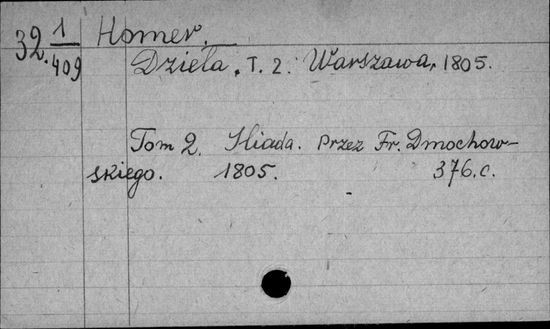 32. 1/409 Homer.
Dzieła. T. 2. Warszawa, 1805.
Tom 2. Iliada. Przez Fr. Dmochow-
skiego. 1805. 376.c.